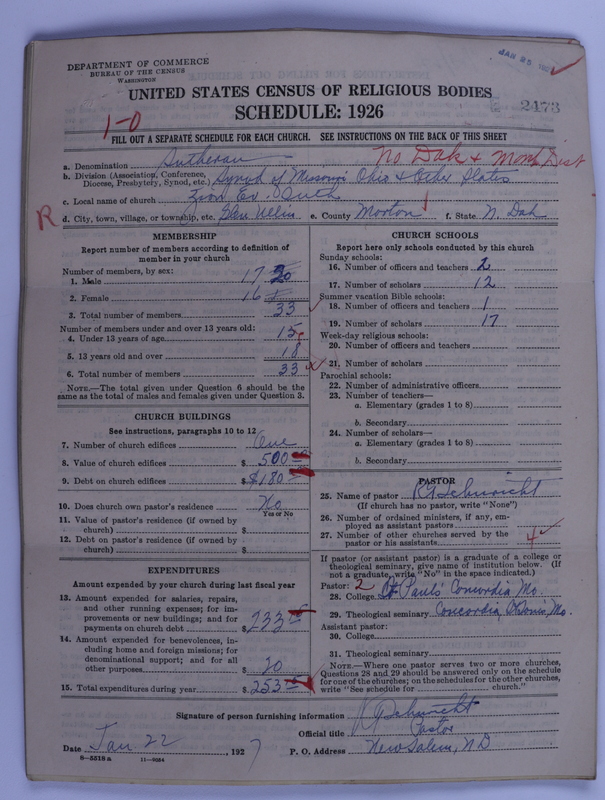 DEPARTMENT OF COMMERCE
BUREAU OF THE CENSUS
WASHINGTON
JAN 25
UNITED STATES CENSUS OF RELIGIOUS BODIES
SCHEDULE: 1926
2473
1-0
FILL OUT A SEPARATE SCHEDULE FOR EACH CHURCH. SEE INSTRUCTIONS ON THE BACK OF THIS SHEET
a. Denomination Lutheran
No Dak & Mont Dist
b. Division (Association, Conference, Diocese, Presbytery, Synod, etc.) Synod of Missouri Ohio & Other States
c. Local name of church Zion Ev. Luth
R
d. City, town, village, or township, etc. Glen Ullin e. County Morton f. State N. Dak
MEMBERSHIP
Report number of members according to definition of
member in your church
Number of members, by sex:
1. Male 17 20
2. Female 16
3. Total number of members 33
Number of members under and over 13 years old:
4. Under 13 years of age 15
5. 13 years old and over 18
6. Total number of members 33
NOTE.—The total given under Question 6 should be the
same as the total of males and females given under Question 3.
CHURCH BUILDINGS
See instructions, paragraphs 10 to 12
7. Number of church edifices One
8. Value of church edifices $ 500
9. Debt on church edifices $ $180
10. Does church own pastor's residence No
Yes or No
11. Value of pastor's residence (if owned by
church) $
12. Debt on pastor's residence (if owned by
church) $
EXPENDITURES
Amount expended by your church during last fiscal year
13. Amount expended for salaries, repairs,
and other running expenses; for im-
provements or new buildings; and for
payments on church debt $ 233
14. Amount expended for benevolences, in-
cluding home and foreign missions; for
denominational support; and for all
other purposes $ 20
15. Total expenditures during year $ 253
CHURCH SCHOOLS
Report here only schools conducted by this church
Sunday schools:
16. Number of officers and teachers 2
17. Number of scholars 12
Summer vacation Bible schools:
18. Number of officers and teachers 1
19. Number of scholars 17
Week-day religious schools:
20. Number of officers and teachers
21. Number of scholars
Parochial schools:
22. Number of administrative officers
23. Number of teachers—
a. Elementary (grades 1 to 8)
b. Secondary
24. Number of scholars—
a. Elementary (grades 1 to 8)
b. Secondary
PASTOR
25. Name of pastor
(If church has no pastor, write "None")
26. Number of ordained ministers, if any, em-
ployed as assistant pastors
27. Number of other churches served by the
pastor or his assistants 4
If pastor (or assistant pastor) is a graduate of a college or
theological seminary, give name of institution below. (If
not a graduate, write "No" in the space indicated.)
Pastor: 2
28. College St Pauls Concordia Mo.
29. Theological seminary Concordia St Louis, Mo.
Assistant pastor:
30. College
31. Theological seminary
NOTE.—Where one pastor serves two or more churches,
Questions 28 and 29 should be answered only on the schedule
for one of the churches; on the schedules for the other churches,
write "See schedule for church."
Signature of person furnishing information
Official title Pastor
Date Jan. 22, 1927 P. O. Address New Salem, ND
8-5518 a 11-9054